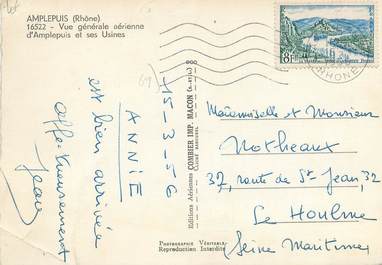 AMPLEPUIS (Rhône)
16522 - Vue générale aérienne
d'Amplepuis et ses Usines
8F
RHONE
(69)
15-3-56
ANNIE
est bien arrivée
affectueusement
Jean
Editions Aériennes COMBIER IMP. MACON (S.-et-L.)
CLICHÉ AÉRIENNE
Mademoiselle et Monsieur
Notheaux
37, route de St Jean, 32
Le Houlme
(Seine Maritime)
PHOTOGRAPHIE VÉRITABLE
Reproduction Interdite